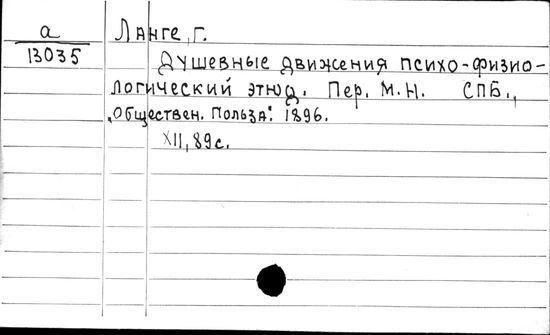 а Ланге, г.
13035 Душевные движения психо-физио-
логический этюд. Пер. М.Н. СПБ.,
„Обществен. Польза". 1896.
XII, 89с.